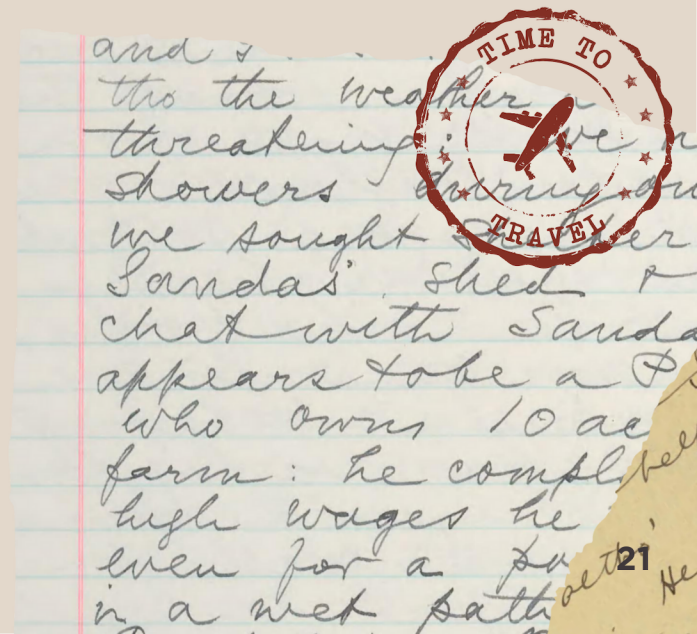 and
tho the weather
threatening: we
showers during our
we sought shelter
Sandas' shed &
chat with Sanda
appears to be a
who owns 10 ac
farm: he compl
high wages he
even for a
in a wet path
TIME TO
TRAVEL
21
He